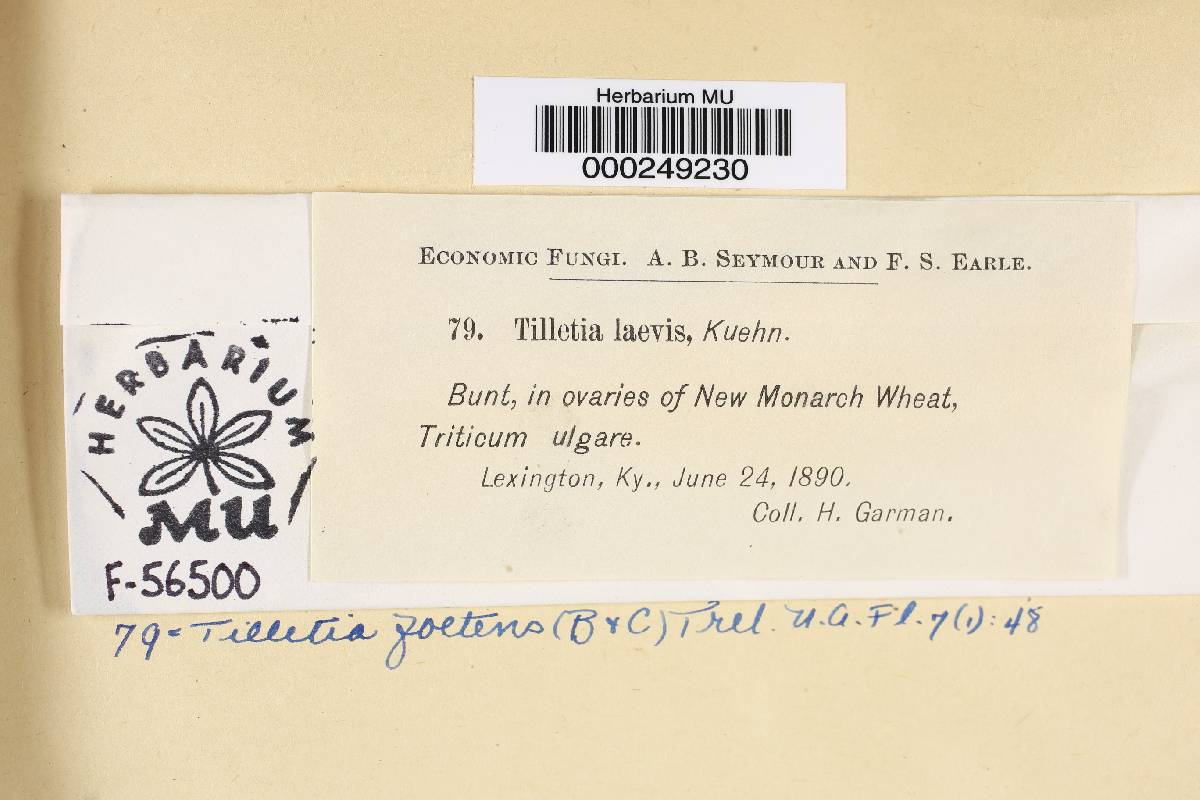 Herbarium MU
000249230
ECONOMIC FUNGI. A. B. SEYMOUR AND F. S. EARLE.
79. Tilletia laevis, Kuehn.
Bunt, in ovaries of New Monarch Wheat,
Triticum ulgare.
Lexington, Ky., June 24, 1890.
Coll. H. Garman.
HERBARIUM
MU
F-56500
79 = Tilletia foetens (B & C) Trel. N.A.Fl. 7(1): 48